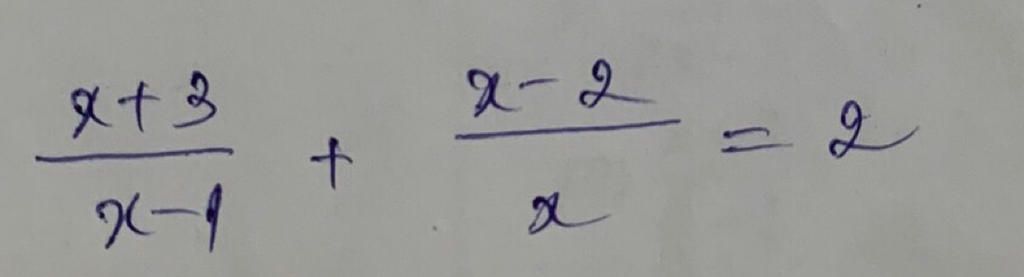 x+3/x-1 + x-2/x = 2